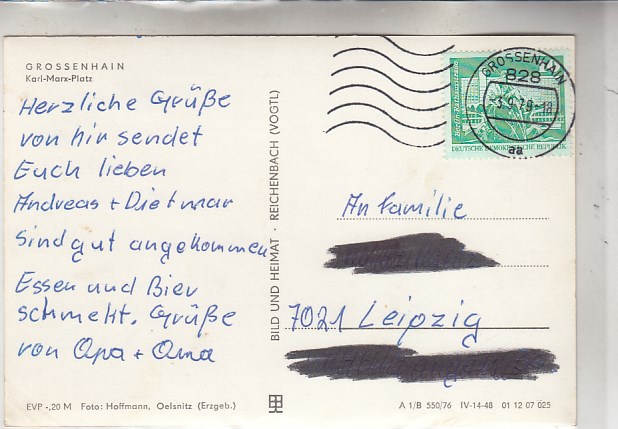 GROSSENHAIN
Karl-Marx-Platz
Herzliche Grüße
von hir sendet
Euch lieben
Andreas + Dietmar
sind gut angekommen
Essen und Bier
schmekt. Grüße
von Opa + Oma
EVP -,20 M Foto: Hoffmann, Oelsnitz (Erzgeb.)
BILD UND HEIMAT · REICHENBACH (VOGTL)
GROSSENHAIN
828
aa
DEUTSCHE DEMOKRATISCHE REPUBLIK
An Familie
7021 Leipzig
A 1/B 550/76 IV-14-48 01 12 07 025